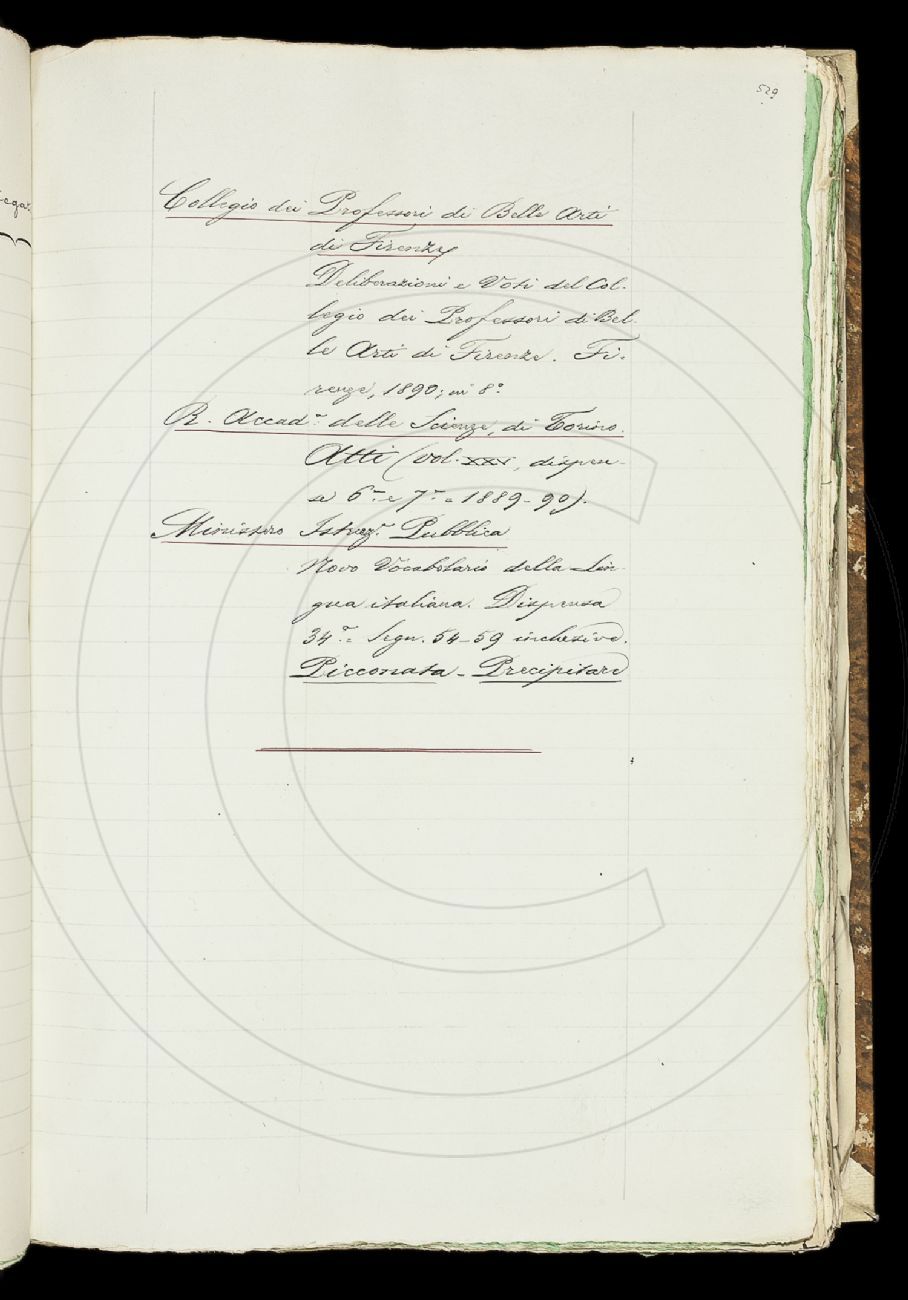 529
Collegio dei Professori di Belle Arti
di Firenze
Deliberazioni e Voti del Col-
legio dei Professori di Bel-
le Arti di Firenze. Fi-
renze, 1890; in 8º
R. Accad.ª delle Scienze, di Torino.
Atti (vol. XXV, dispen-
se 6ª e 7ª = 1889-90).
Ministero Istruz.e Pubblica
Novo Vocabolario della Lin-
gua italiana. Dispensa
34ª = Segn. 54-59 inclusive.
Picconata - Precipitare